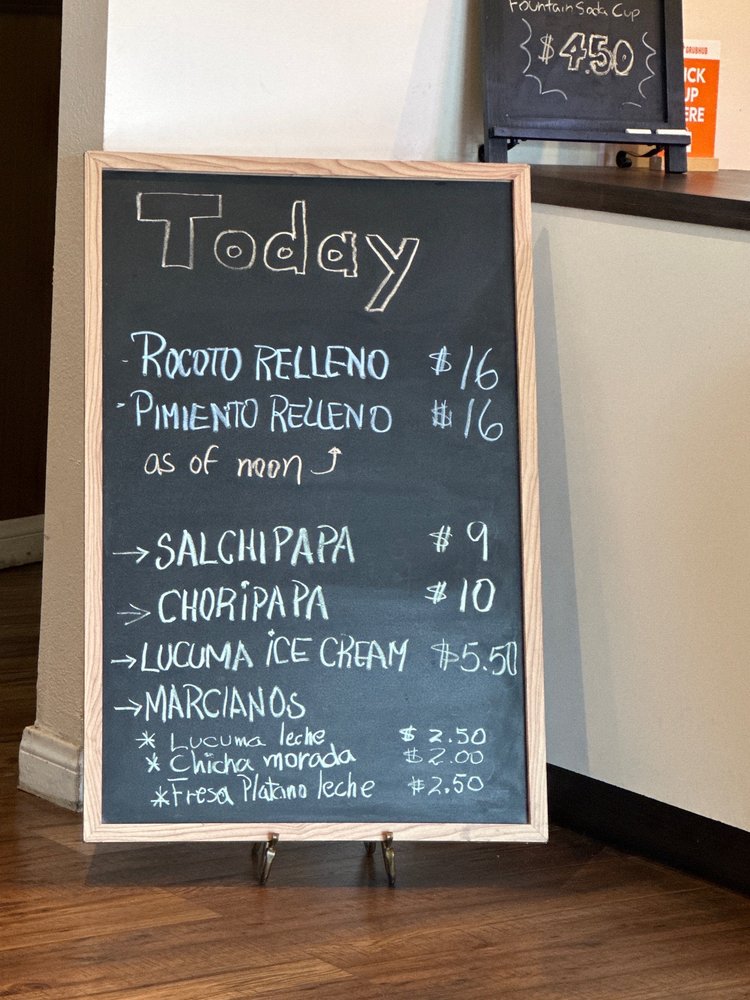 Fountain Soda Cup
$4.50
GRUBHUB
Today
- ROCOTO RELLENO $16
- PIMIENTO RELLENO $16
as of noon ⤴
→ SALCHIPAPA $9
→ CHORiPAPA $10
→ LUCUMA iCE CREAM $5.50
→ MARCIANOS
* Lucuma leche $2.50
* Chicha morada $2.00
* Fresa Platano leche $2.50